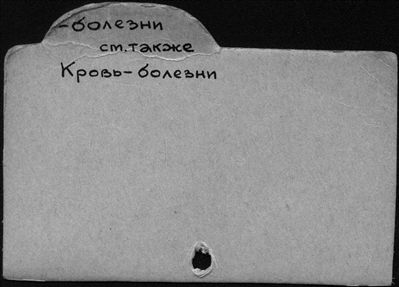 -болезни
см.также
Кровь-болезни